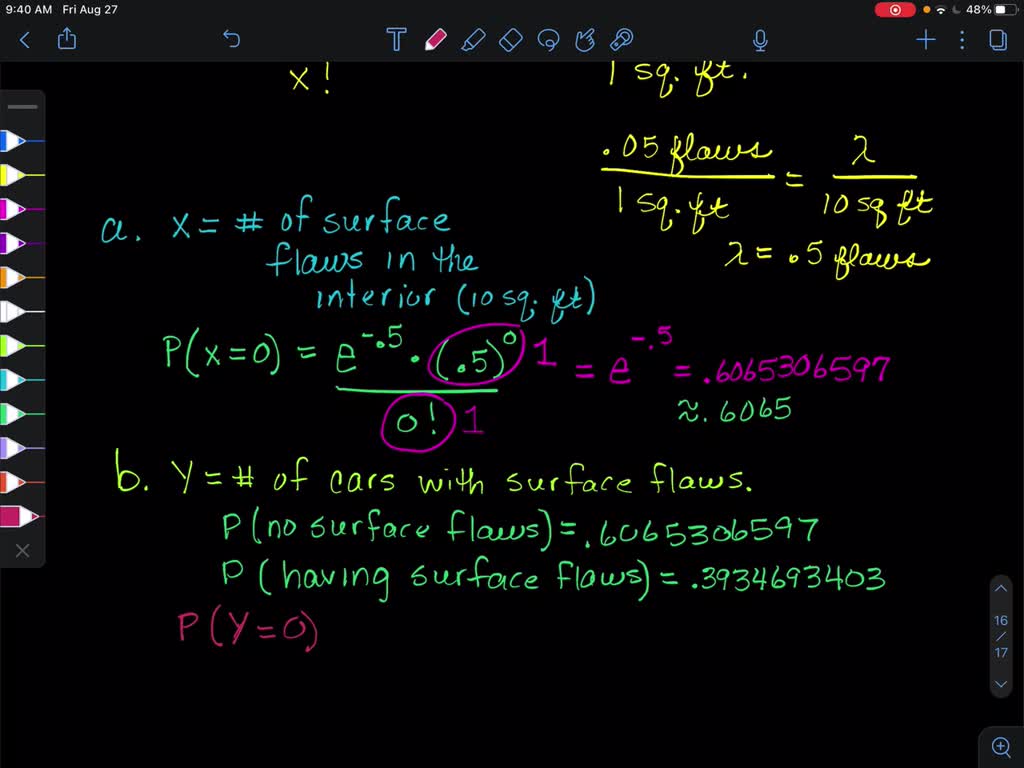 9:40 AM Fri Aug 27
48%
T
x!
1 sq. ft.
.05 flaws / 1 sq. ft = λ / 10 sq ft
λ = .5 flaws
a. X = # of surface
flaws in the
interior (10 sq. ft)
P(X=0) = e^-.5 · (.5)^0 / 0! 1 1 = e^-.5 = .6065306597
≈ .6065
b. Y = # of cars with surface flaws.
P(no surface flaws) = .6065306597
P (having surface flaws) = .3934693403
P(Y=0)
16
/
17